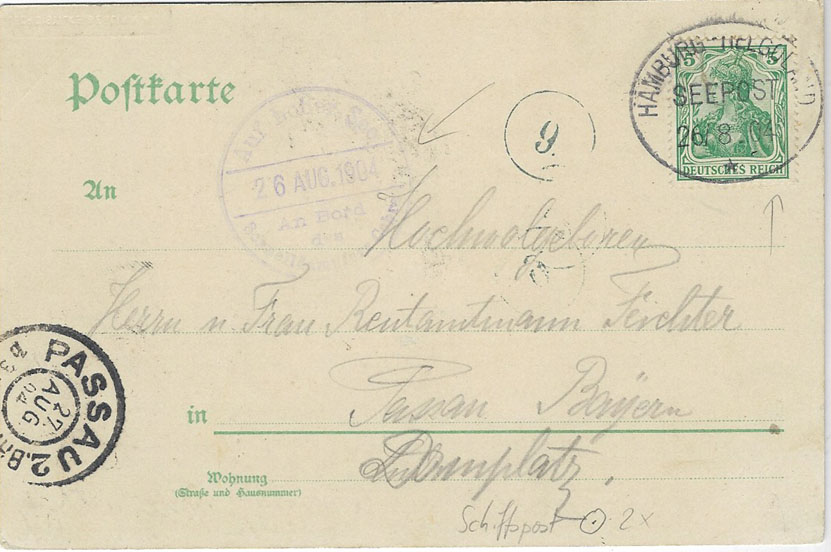 5
HAMBURG HELGOLAND
SEEPOST
26/8 04
DEUTSCHES REICH
Postkarte
Auf hoher See
26 AUG.1904
An Bord
des
9
An
Hochwolgeboren
Herrn u Frau Rentamtmann Feichter
PASSAU 2. B
27
AUG
04
in
Passau Bayern
Wohnung
(Straße und Hausnummer)
Domplatz.
Schiffspost 2x